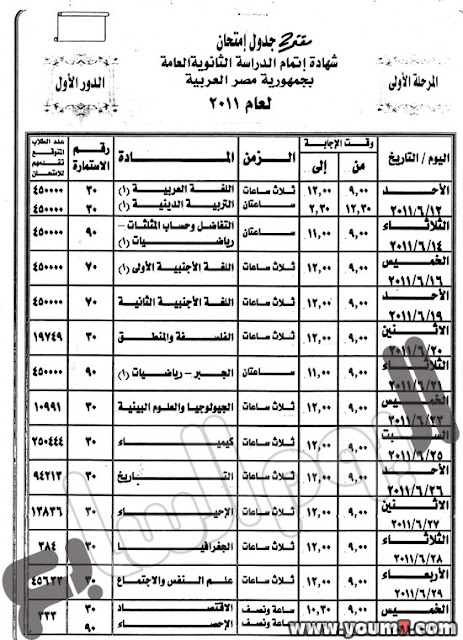 مقترح جدول إمتحان
شهادة إتمام الدراسة الثانوية العامة
بجمهورية مصر العربية
لعام ٢٠١١
المرحلة الأولى
الدور الأول
اليوم / التاريخ وقت الإجابة من إلى الزمن المادة رقم الاستمارة عدد الطلاب المتوقع تقدمهم للامتحان
الأحد ٢٠١١/٦/١٢ ٩,٠٠ ١٢,٠٠ ثلاث ساعات اللغة العربية (١) ٣٠ ٤٥٠٠٠٠
١٢,٣٠ ٢,٣٠ ساعتان التربية الدينية (١) ٣٠ ٤٥٠٠٠٠
الثلاثاء ٢٠١١/٦/١٤ ٩,٠٠ ١١,٠٠ ساعتان التفاضل وحساب المثلثات - رياضيات (١) ٩٠ ٤٥٠٠٠٠
الخميس ٢٠١١/٦/١٦ ٩,٠٠ ١٢,٠٠ ثلاث ساعات اللغة الأجنبية الأولى (١) ٧٠ ٤٥٠٠٠٠
الأحد ٢٠١١/٦/١٩ ٩,٠٠ ١٢,٠٠ ثلاث ساعات اللغة الأجنبية الثانية ٧٠ ٤٥٠٠٠٠
الاثنين ٢٠١١/٦/٢٠ ٩,٠٠ ١٢,٠٠ ثلاث ساعات الفلسفة والمنطق ٣٠ ١٩٧٤٩
الثلاثاء ٢٠١١/٦/٢١ ٩,٠٠ ١١,٠٠ ساعتان الجبر - رياضيات (١) ٩٠ ٤٥٠٠٠٠
الخميس ٢٠١١/٦/٢٣ ٩,٠٠ ١٢,٠٠ ثلاث ساعات الجيولوجيا والعلوم البيئية ٣٠ ١٠٩٩١
السبت ٢٠١١/٦/٢٥ ٩,٠٠ ١٢,٠٠ ثلاث ساعات كيمياء ٣٠ ٢٥٠٤٤٤
الأحد ٢٠١١/٦/٢٦ ٩,٠٠ ١٢,٠٠ ثلاث ساعات التاريخ ٣٠ ٩٤٢١٣
الاثنين ٢٠١١/٦/٢٧ ٩,٠٠ ١٢,٠٠ ثلاث ساعات الإحياء ٣٠ ١٣٨٣٦
الثلاثاء ٢٠١١/٦/٢٨ ٩,٠٠ ١٢,٠٠ ثلاث ساعات الجغرافيا ٣٠ ٣٨٤
الأربعاء ٢٠١١/٦/٢٩ ٩,٠٠ ١٢,٠٠ ثلاث ساعات علم النفس والاجتماع ٣٠
الخميس ٩,٠٠ ١٠,٣٠ ساعة ونصف الاقتصاد ٣٠ ٣٣٣
ساعة ونصف الإحصاء ٩٠
اليوم السابع
www.youm7.com